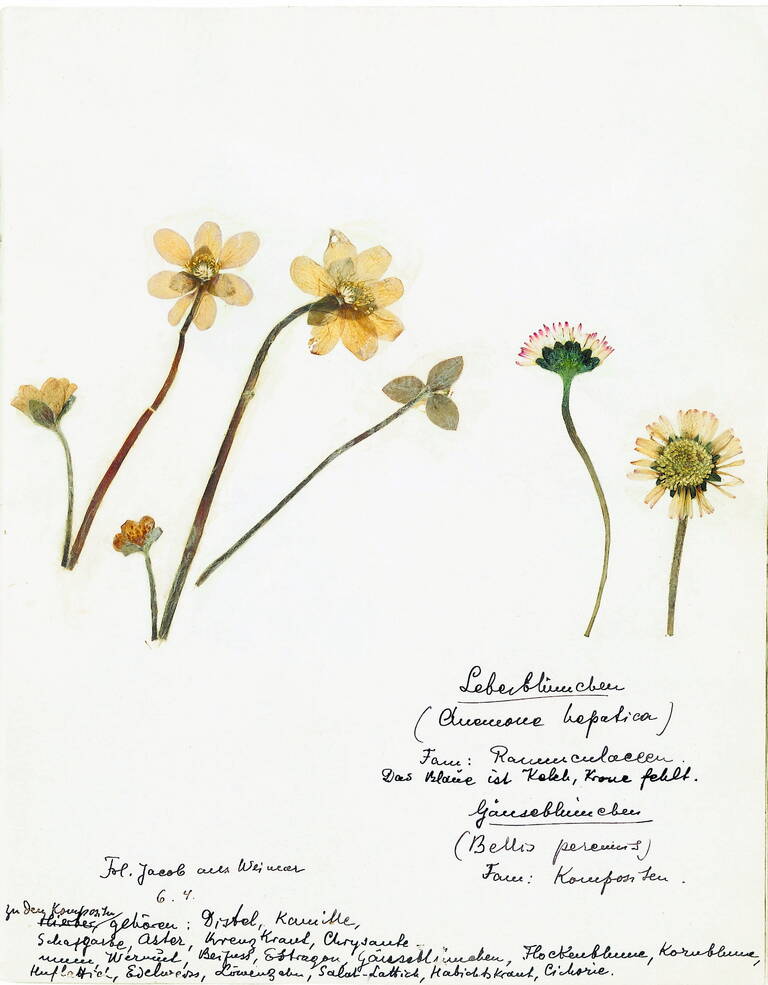 Leberblümchen
(Anemone hepatica)
Fam: Ranunculaceen.
Das Blaue ist Kelch, Krone fehlt.
Gänseblümchen
(Bellis perennis)
Fam: Kompositen.
Frl. Jacob aus Weimar
6. 4.
zu den Kompositen
Hierher gehören: Distel, Kamille,
Schafgarbe, Aster, Kreuzkraut, Chrysante-
mum Wermut, Beifuss, Estragon, Gänseblümchen, Flockenblume, Kornblume,
Huflattich, Edelweiss, Löwenzahn, Salat-Lattich, Habichtskraut, Cichorie.